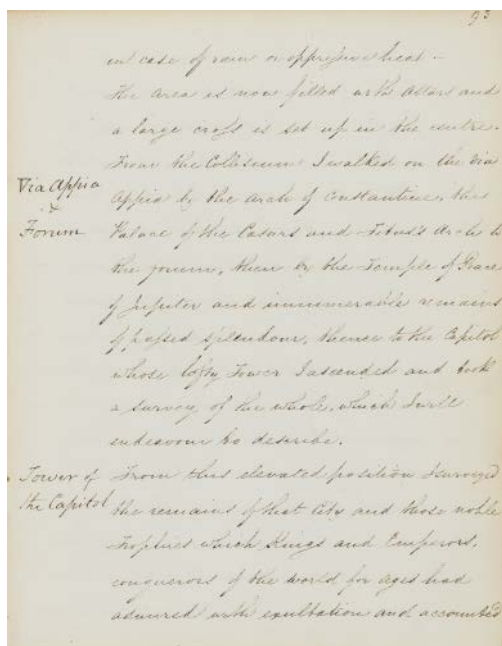 93
in case of rain or oppressive heat –
the area is now filled with Altars and
a large cross is set up in the centre.
From the Colliseum I walked on the Via
Via Appia
&
Forum
Appia by the arch of Constantine, the
Palace of the Casars and Titus's Arch to
the forum, then by the Temple of Peace
of Jupiter and innumerable remains
of passed splendour, thence to the Capitol
whose lofty Tower I ascended and took
a survey of the whole, which I will
endeavour to describe.
Tower of
the Capitol
From this elevated position I surveyed
the remains of that City and those noble
Trophies which Kings and Emperors,
conquerors of the world for ages had
admired with exultation and accounted